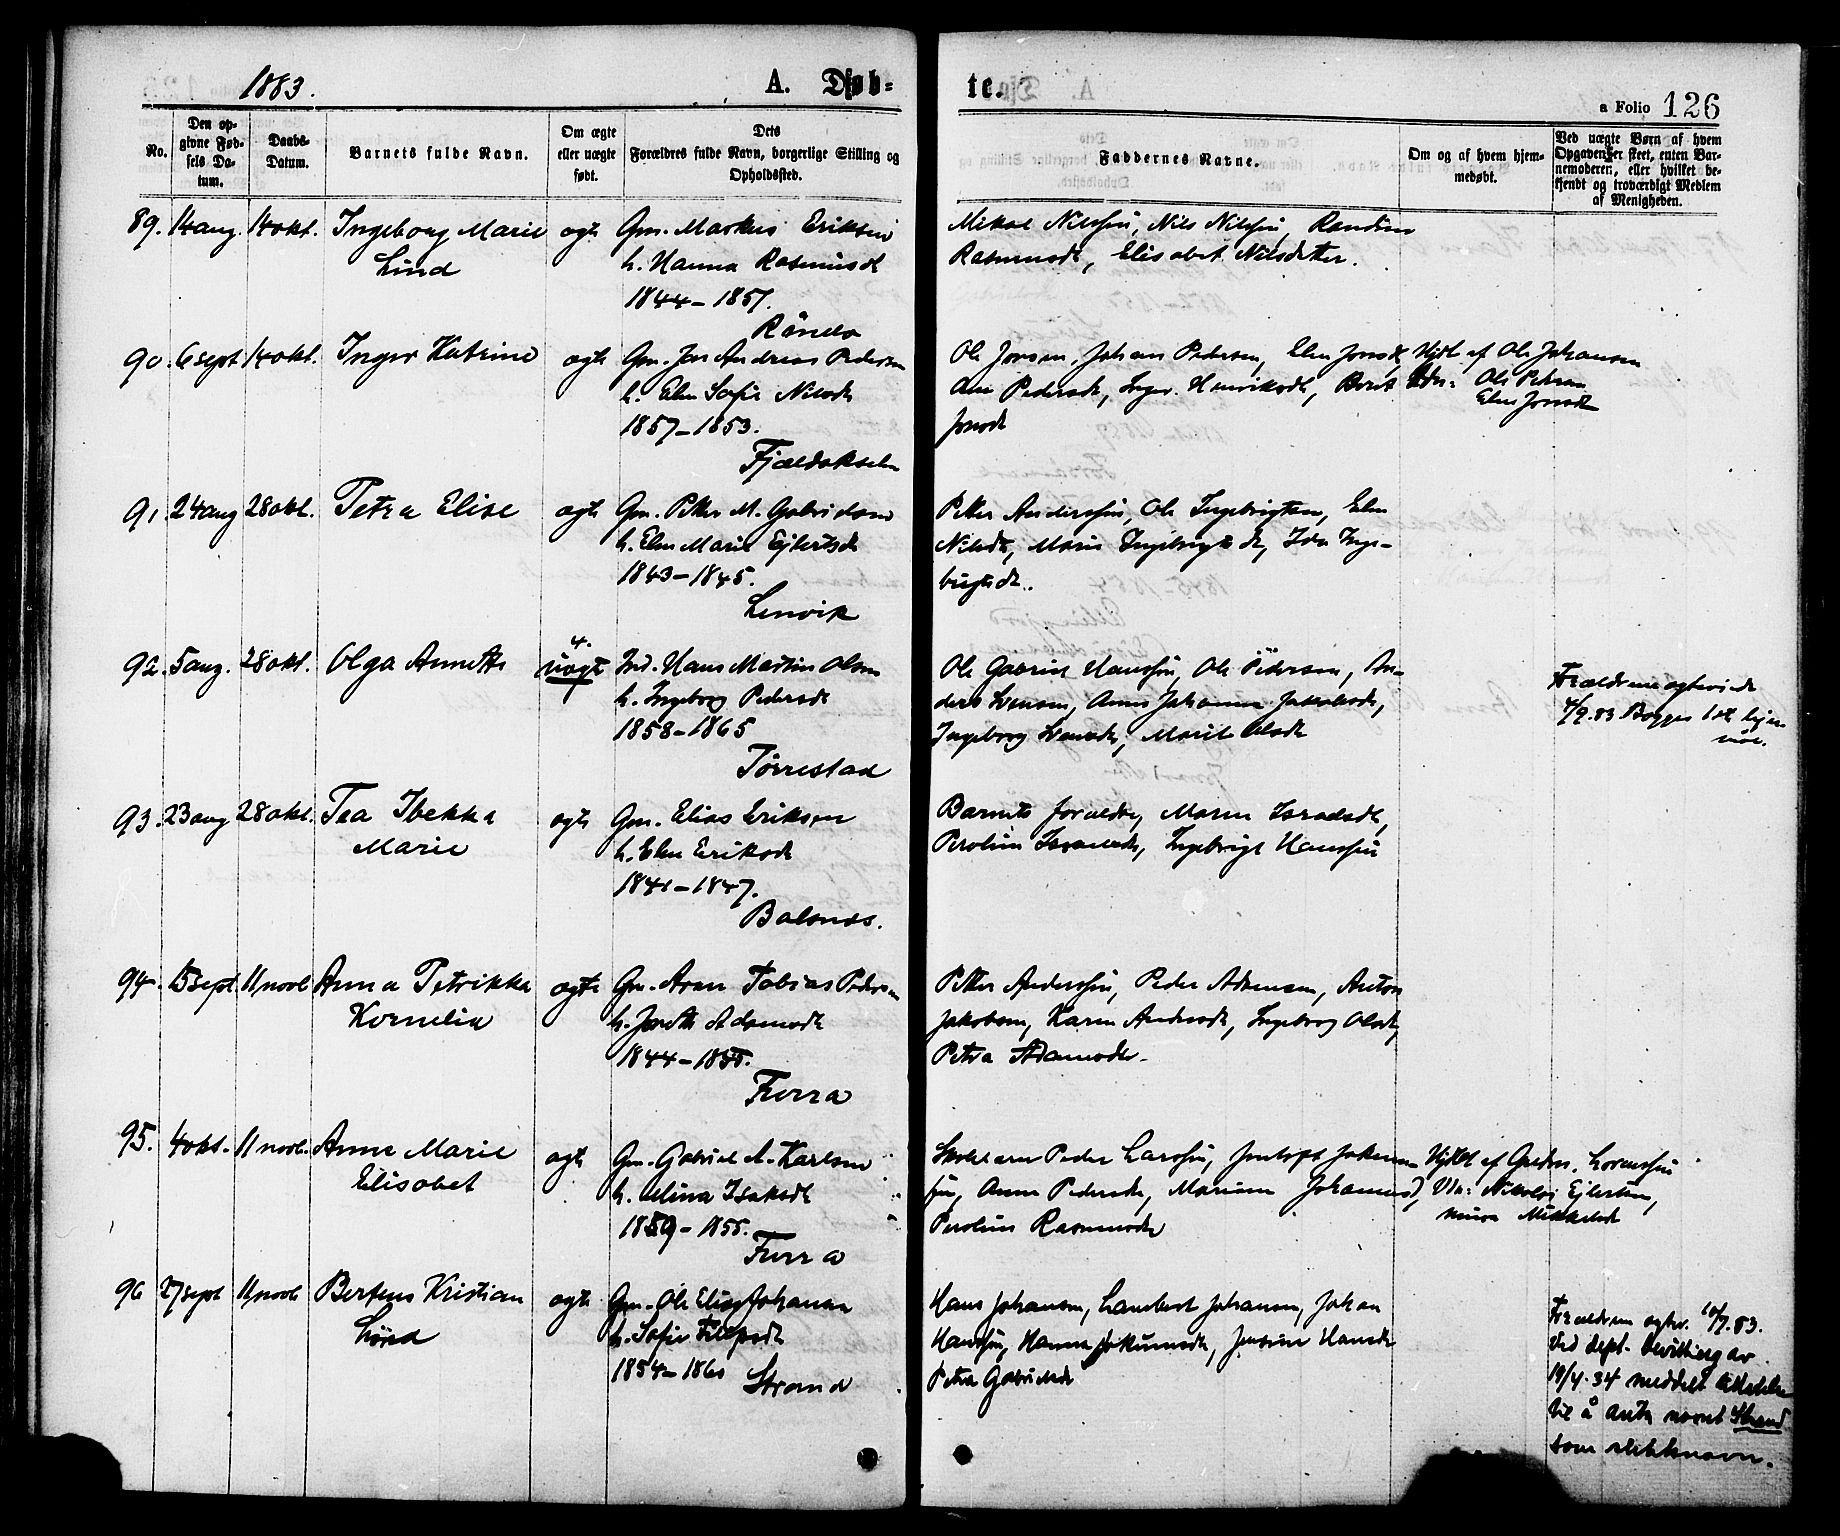 1883.
A. Døb-
te.
a Folio 126
No.
Den op-
givne Fød-
sels Da-
tum.
Daabs-
Datum.
Barnets fulde Navn.
Om ægte
eller uægte
født.
Dets
Forældres fulde Navn, borgerlige Stilling og
Opholdssted.
Faddernes Navne.
Om og af hvem hjem-
medøbt.
Ved uægte Børn af hvem
Opgaven er skeet, enten Bar-
nemoderen, eller hvilket be-
kjendt og troværdigt Medlem
af Menigheden.
89. 14 aug. 14 okt. Ingeborg Marie
Lind
ægte
Gm. Markus Eriksen
h. Hanna Rasmusdt
1844-1857.
Rånda
Mikal Nilssen, Nils Nilssen,
Rasmusdt, Elisabet Nilsdatter.
90. 6 sept 14 okt. Inger Katrine
ægte
Gm. Jon Andreas Pedersen
h. Elen Sofie Nilsdt
1857-1853.
Fjældaksel
Ole Jonsen, Johan Pedersen, Elen Jonsdt,
Ane Pedersdt, Inger Henriksdt, Berit
Jonsdt
Hjdt af Ole Johansen
Vidn: Ole Petersen
Elen Jonsdt
91. 24 aug 28 okt. Petra Elise
ægte
Gm. Petter M. Gabrielsen
h. Elen Marie Ejlertsdt
1843-1845.
Lenvik
Petter Anderssen, Ole Ingebrigtsen, Elen
Nilsdt, Marie Ingebrigtsdt, Ida Inge-
brigtsdt.
92. 5 aug. 28 okt. Olga Annette
4.
uægte
Ind. Hans Martin Olsen
h. Ingeborg Pedersdt
1858-1865
Tørrestad
Ole Gabriel Hanssen, Ole Pedersen, An-
ders Svensen, Anne Johanna Jakobsdt,
Ingeborg Svensdt, Marit Olsdt
Forældrene ægteviede
4/9.83 Begges 1ste lejer-
maal.
93. 23 aug 28 okt. Tea Ibekka
Marie
ægte
Gm. Elias Eriksen
h. Elen Eriksdt
1841-1847.
Balsnes.
Barnets forældre, Maren Israelsdt,
Peroline Israelsdt, Ingebrigt Hanssen
94. 15 sept. 11 novb Anna Petrikka
Kornelia
ægte
Gm. Aron Tobias Pedersen
h. Jonette Adamsdt
1844-1855.
Furra
Petter Anderssen, Peder Adamsen, Anton
Jakobsen, Karen Andersdt, Ingeborg Olsdt,
Petra Adamsdtr.
95. 4 okt. 11 novb. Anne Marie
Elisabet
ægte
Gm. Gabriel A. Karlsen
h. Mina Isaksdt
1859-1855.
Furra
Skolelærer Peder Larssen, Jentoft Johannes-
sen, Anne Pedersdt, Mariane Johannesd,
Peroline Rasmusdt
Hjdbt af Lorentssen
Vidn: Nikolai Ejlertsen,
Mikkelsdt
96 27 sept 11 novb Berteus Kristian
Lönd
ægte
Gm. Ole Elias Johansen
h. Sofie Filipsdt
1854-1860
Strand
Hans Johansen, Lambert Johansen, Johan
Hanssen, Hanna Jokumsdt, Jensine Hansdt
Petra Gabrielsdt
Forældrene ægtev. 10/7.83.
Ved dept. bevilling av
19/4.34 meddelt tillatelse
til å anta navnet Strand
som slektsnavn.